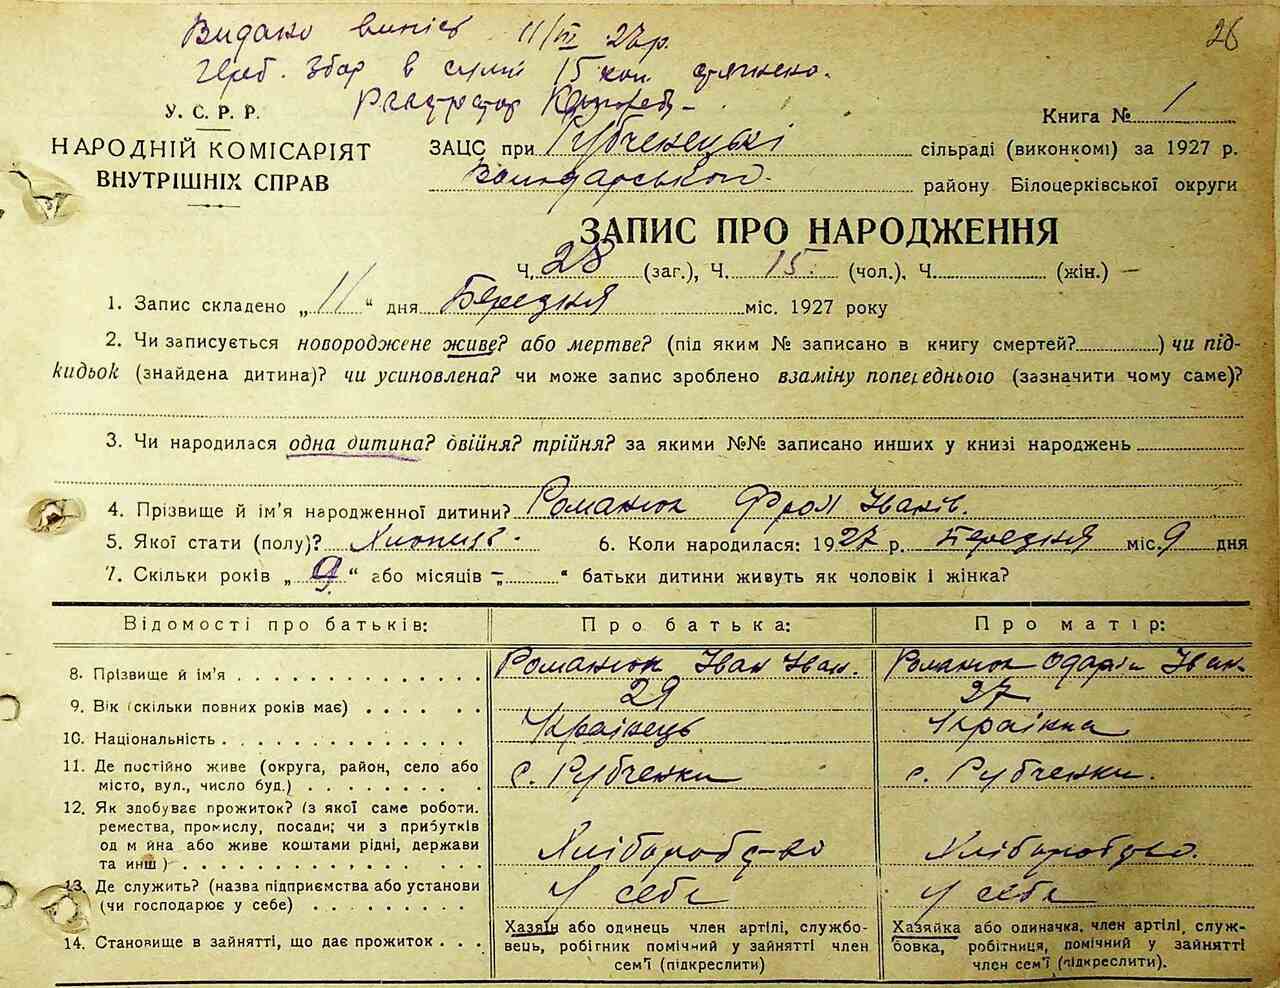 Видано випис 11/III 27 р.
28
Герб. збор в сумі 15 коп. стягнено.
У. С. Р. Р.
Реєстратор
Книга № 1
НАРОДНІЙ КОМІСАРІЯТ
ВНУТРІШНІХ СПРАВ
ЗАЦС при Рубченецькі сільраді (виконкомі) за 1927 р.
району Білоцерківської округи
ЗАПИС ПРО НАРОДЖЕННЯ
Ч. 28 (заг.), Ч. 15. (чол.), Ч. (жін.) —
1. Запис складено „ 11 “ дня Березня міс. 1927 року
2. Чи записується новороджене живе? або мертве? (під яким № записано в книгу смертей? ) чи під-
кидьок (знайдена дитина)? чи усиновлена? чи може запис зроблено взаміну попереднього (зазначити чому саме)?
3. Чи народилася одна дитина? двійня? трійня? за якими №№ записано инших у книзі народжень
4. Прізвище й ім’я народженної дитини? Романюк Фрол Іванів.
5. Якої стати (полу)? Хлопець. 6. Коли народилася: 1927 р. Березня міс. 9 дня
7. Скільки років „ 9 “ або місяців –„ “ батьки дитини живуть як чоловік і жінка?
Відомості про батьків: Про батька: Про матір:
8. Прізвище й ім’я Романюк Іван Іван. Романюк Одарія Іван.
9. Вік (скільки повних років має) 29 27
10. Національність Українець Українка
11. Де постійно живе (округа, район, село або
місто, вул., число буд.) с. Рубченки с. Рубченки.
12. Як здобуває прожиток? (з якої саме роботи.
ремества, промислу, посади; чи з прибутків
од м йна або живе коштами рідні, держави
та инш ) Хліборобс-во Хліборобство.
13. Де служить? (назва підприємства або установи
(чи господарює у себе) У себе У себе
14. Становище в зайнятті, що дає прожиток
Хазяїн або одинець член артілі, службо-
вець, робітник помічний у зайнятті член
сем’ї (підкреслити)
Хазяйка або одиначка, член артілі, служ-
бовка, робітниця, помічний у зайнятті
член сем’ї (підкреслити).